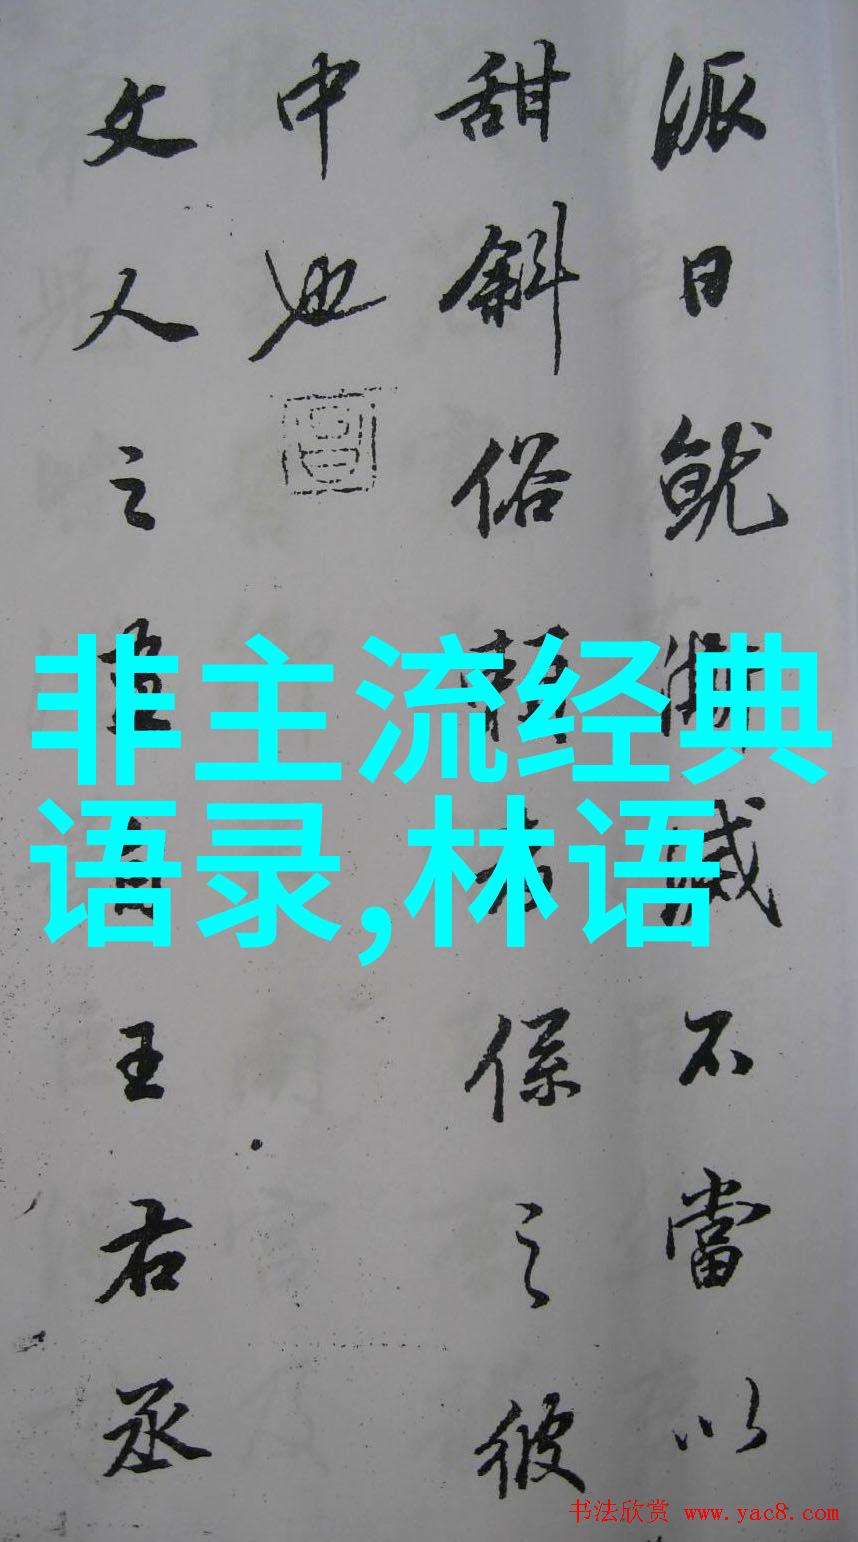 派日就漸滅不當以
甜斜俗者係之彼
中也
文人之畫自王右丞
非主流经典
语录,林语
书法欣赏 www.yac8.com